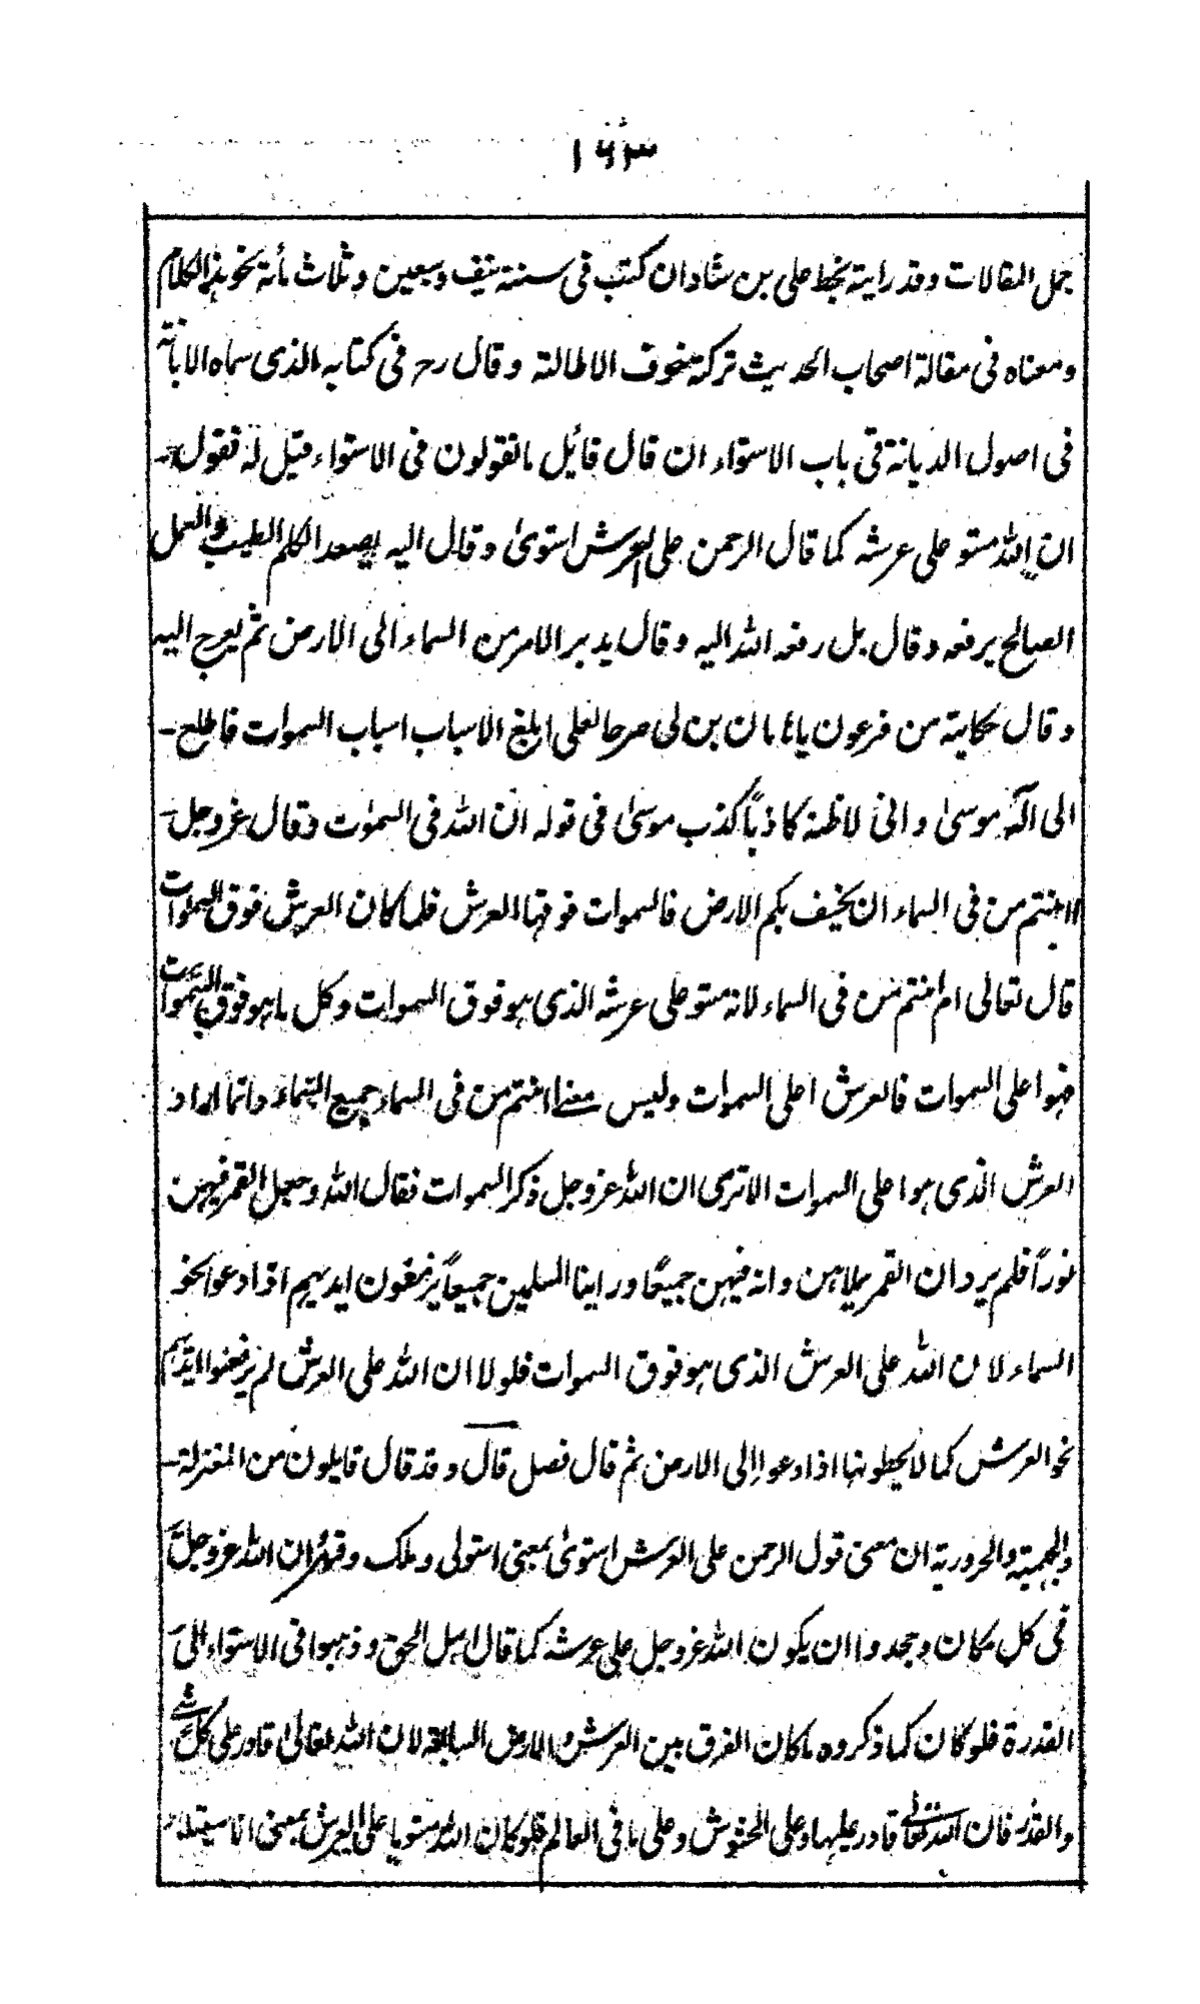 ١٦٣
جمل المقالات وقد رايته بخط على بن شادان كتب فى سنة نيف وسبعين وثلاث مأئة نحو هذا الكلام
ومعناه فى مقالة اصحاب الحديث تركته خوف الاطالة وقال رح فى كتابه الذى سماه الابانة
فى اصول الديانة فى باب الاستواء ان قال قائل ما تقولون فى الاستواء قيل له نقول
ان الله مستو على عرشه كما قال الرحمن على العرش استوىٰ وقال اليه يصعد الكلم الطيب والعمل
الصالح يرفعه وقال بل رفعه الله اليه وقال يدبر الامر من السماء الى الارض ثم يعرج اليه
وقال حكاية من فرعون ياهامان بن لى صرحا لعلى ابلغ الاسباب اسباب السموات فاطلع
الى اله موسىٰ وانى لاظنه كاذباً كذب موسىٰ فى قوله ان الله فى السموٰت وقال عز وجل
اامنتم من فى السماء ان يخسف بكم الارض فالسموات فوقها العرش فلما كان العرش فوق السموات
قال تعالى ام امنتم من فى السماء لانه مستو على عرشه الذى هو فوق السموات وكل ما هو فوق السموات
فهو اعلى السموات فالعرش اعلى السموات وليس معنے اامنتم من فى السماء جميع السماء وانما اراد
العرش الذى هو اعلى السموات الا ترى ان الله عز وجل ذكر السموات فقال الله وجعل القمر فيهن
نوراً فلم يرد ان القمر يملاهن وانه فيهن جميعًا وراينا المسلمين جميعاً يرفعون ايديهم اذا دعوا نحو
السماء لان الله على العرش الذى هو فوق السموات فلولا ان الله على العرش لم يرفعوا ايديهم
نحو العرش كما لا يحطونها اذا دعوا الى الارض ثم قال فصل قال وقد قال قايلون من المعتزلة
والجهمية والحرورية ان معنى قول الرحمن على العرش استوىٰ بمعنى استولى وملك وقهر وان الله عز وجل
فى كل مكان وجحدوا ان يكون الله عز وجل على عرشه كما قال اهل الحق وذهبوا فى الاستواء الى
القدرة فلو كان كما ذكروه ما كان الفرق بين العرش والارض السابعة لان الله تعالىٰ قادر على كل شے
والقدر فان الله تعالى قادر عليها وعلى الحشوش وعلى ما فى العالم فلو كان الله مستويا على العرش بمعنى الاستيلاء